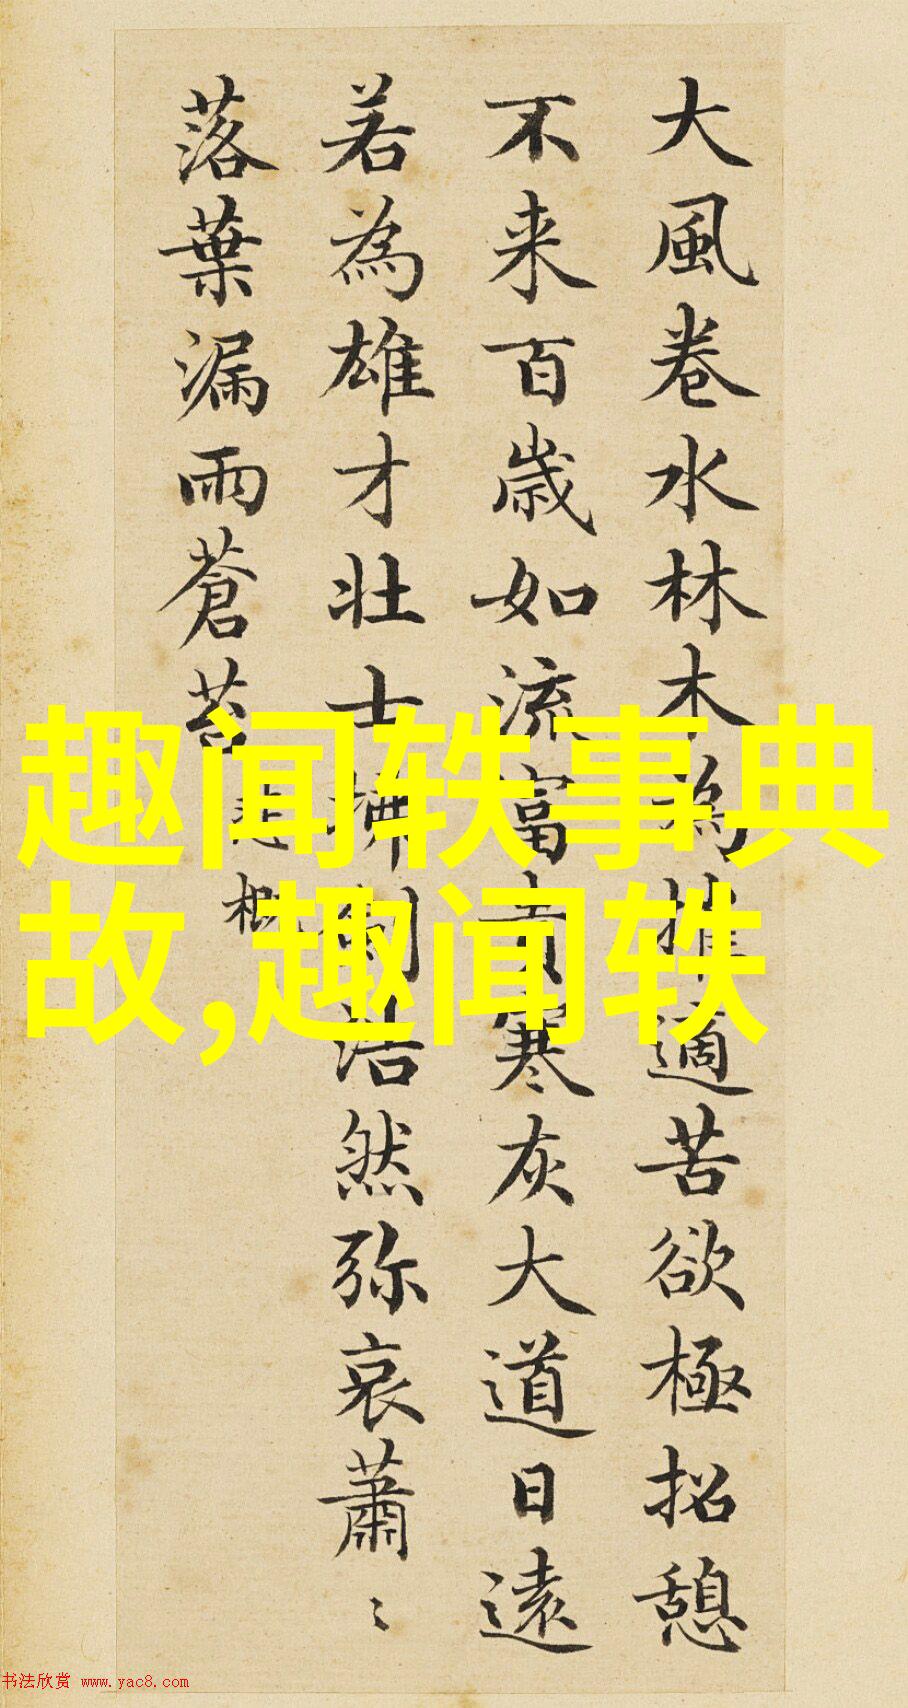 大風卷水林木為摧適苦欲極招憩
不来百歳如流富貴寒灰大道日遠
若為雄才壯士拂劍浩然弥哀蕭〻
落葉漏雨蒼苔
悲慨
趣闻轶事典
故,趣闻轶
书法欣赏 www.yac8.com